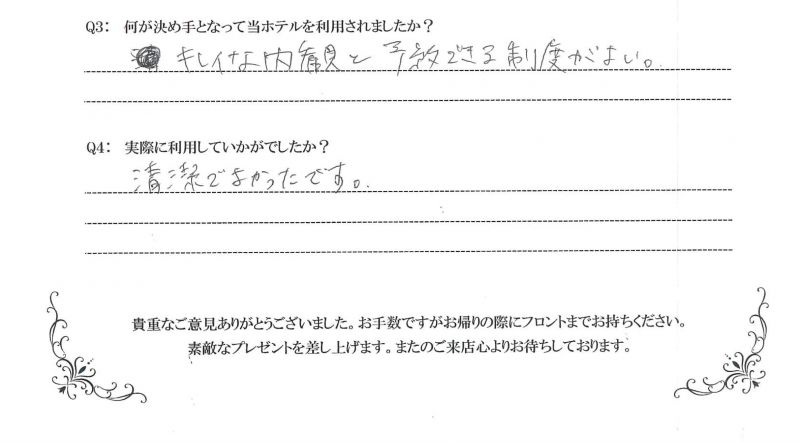 Q3: 何が決め手となって当ホテルを利用されましたか？
キレイな内観と予約できる制度がよい。
Q4: 実際に利用していかがでしたか？
清潔でよかったです。
貴重なご意見ありがとうございました。お手数ですがお帰りの際にフロントまでお持ちください。
素敵なプレゼントを差し上げます。またのご来店心よりお待ちしております。